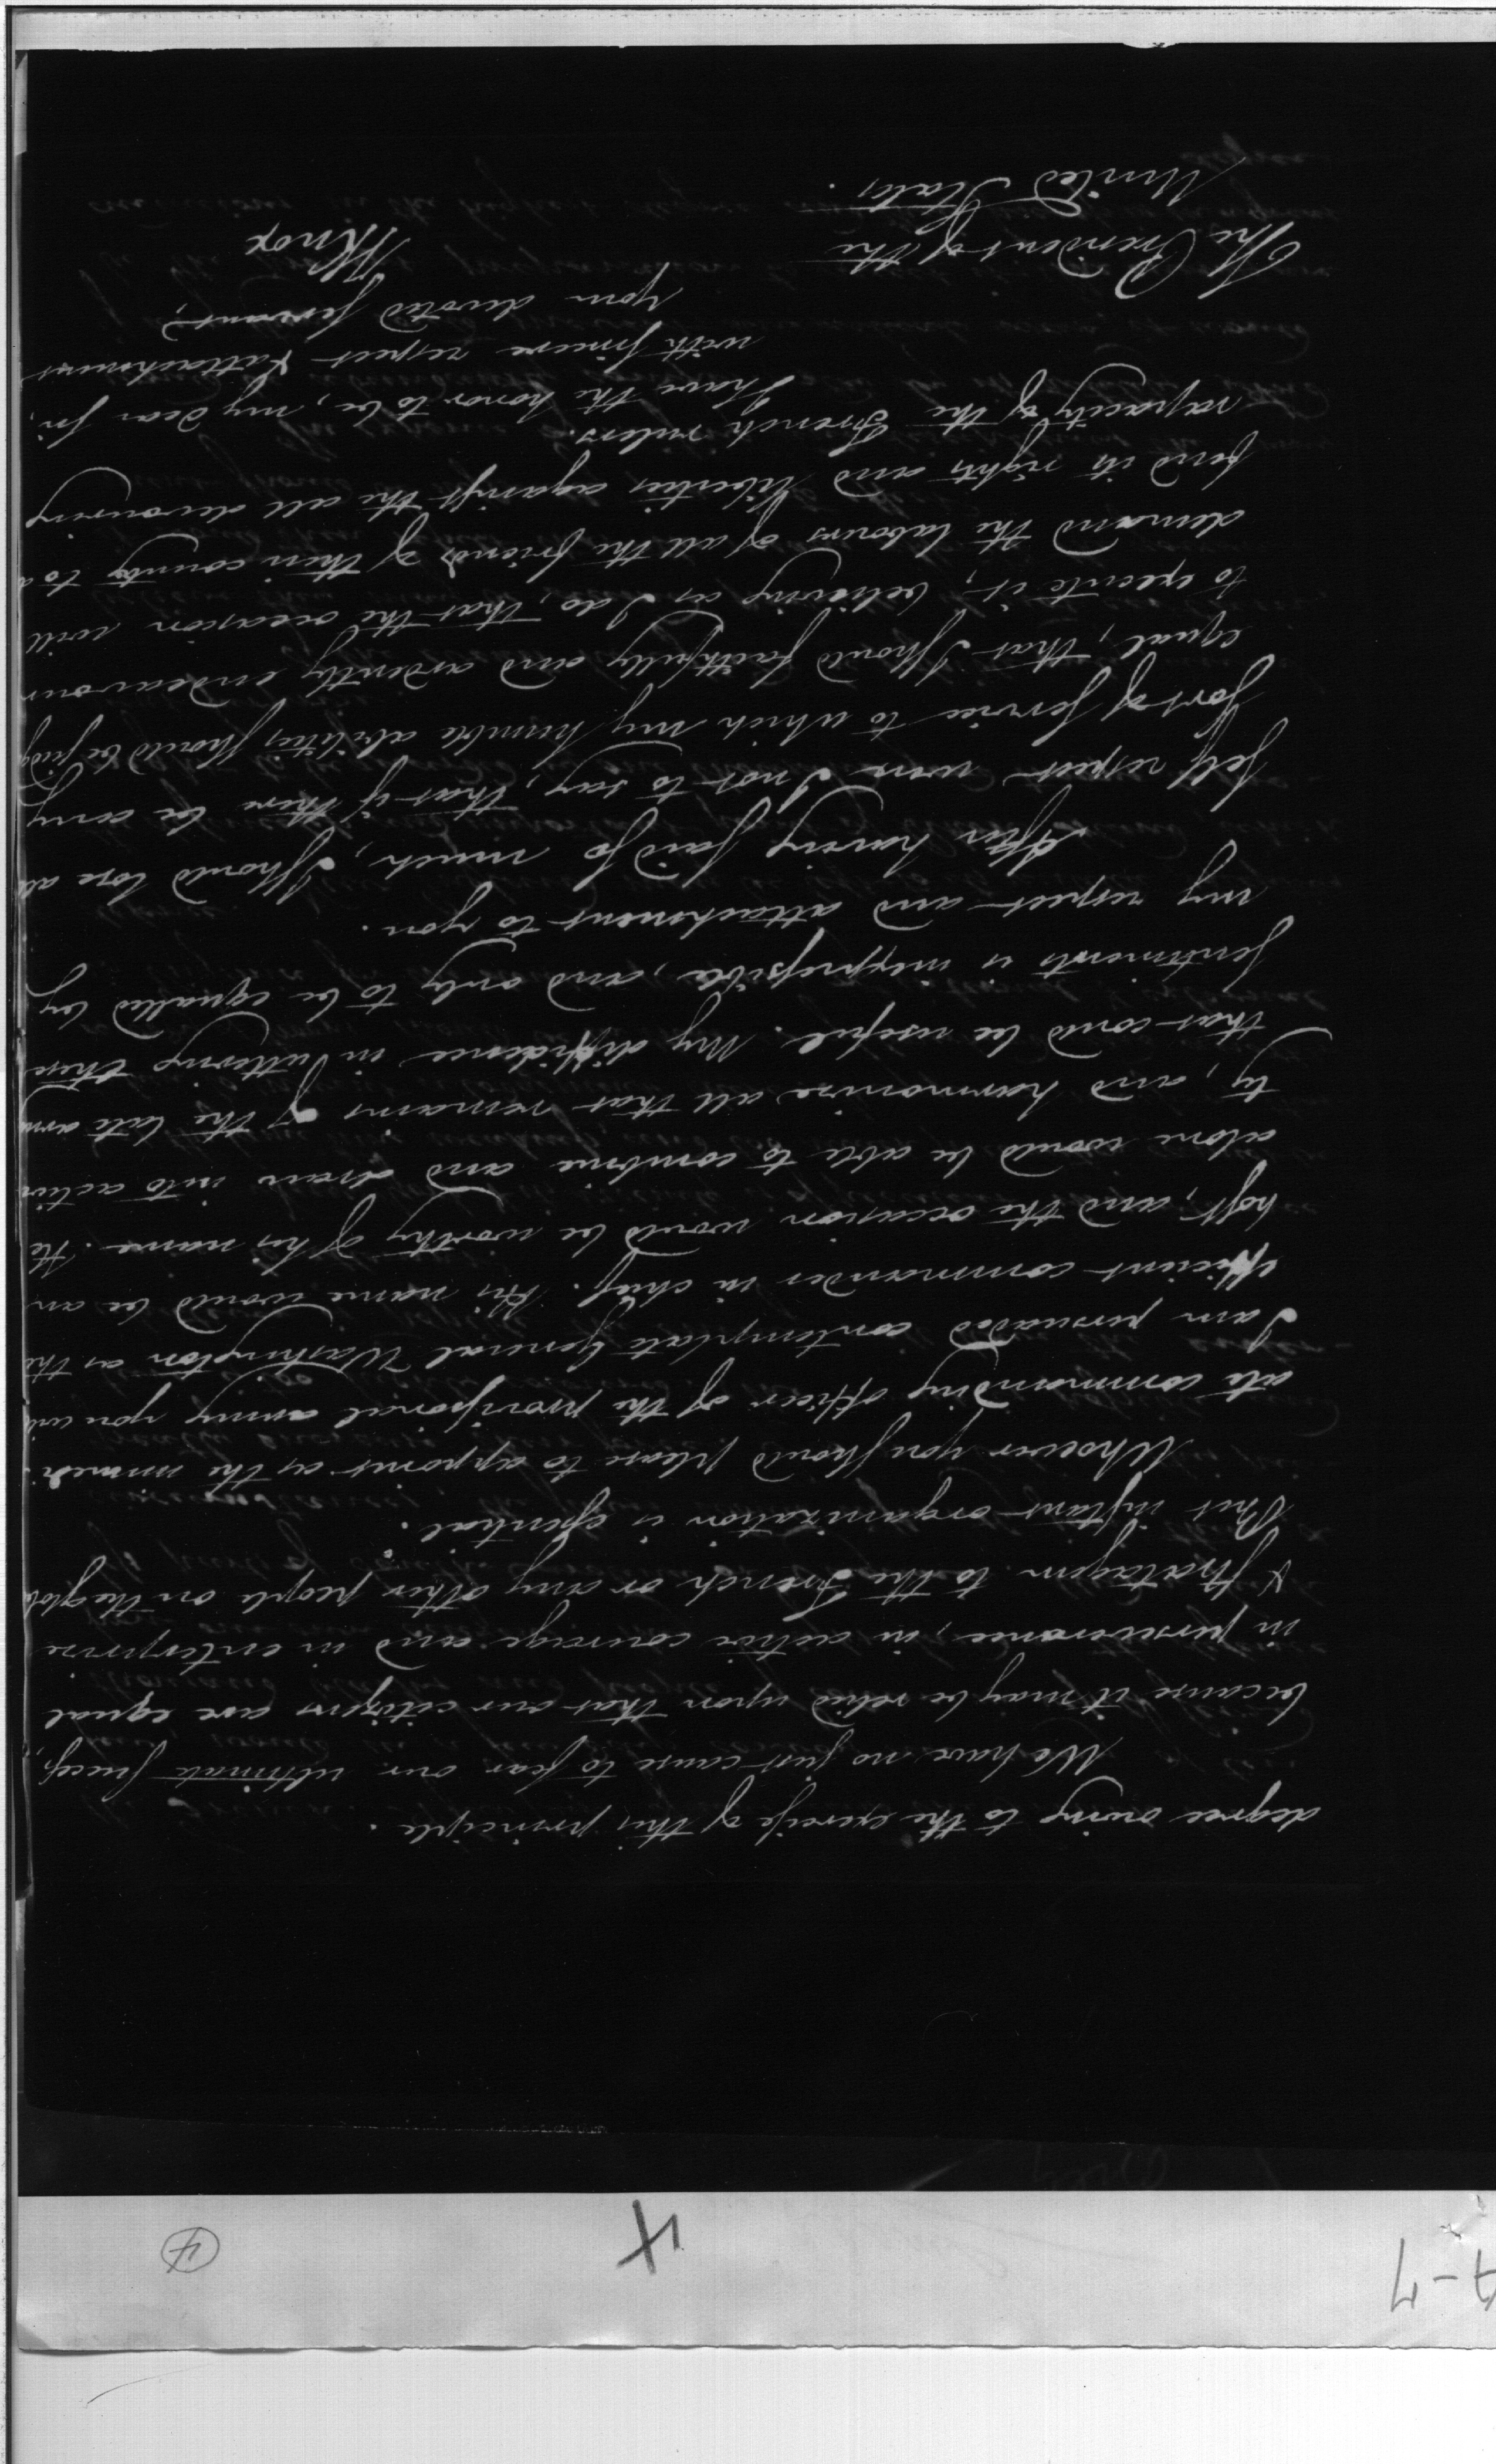 degree owing to the exercise of this principle.
We have no just cause to fear our ultimate success,
because it may be relied upon that our citizens are equal
in perseverance, in active courage and in enterprize
& stratagem to the French or any other people on the glob
But instant organization is essential.
Whoever you should please to appoint as the immedi-
ate commanding officer of the provisional army you will
I am persuaded contemplate General Washington as the
efficient commander in chief. His name would be an
host, and the occasion would be worthy of his name. He
alone would be able to combine and draw into activi
ty, and harmonize all that remains of the late arm
that could be useful. My diffidence in uttering these
sentiments is inexpressible, and only to be equalled by
my respect and attachment to you.
After having said so much, I should lose all
self respect were I not to say, that if there be any
sort of service to which my humble abilities should be judg
equal, that I should faithfully and ardently endeavour
to execute it, believing as I do, that the occasion will
demand the labours of all the friends of their country to d
fend its rights and liberties against the all devouring
rapacity of the French rulers.
I have the honor to be, my dear sir,
with sincere respect & attachment
your devoted servant,
HKnox
The President of the
United States.
4
4